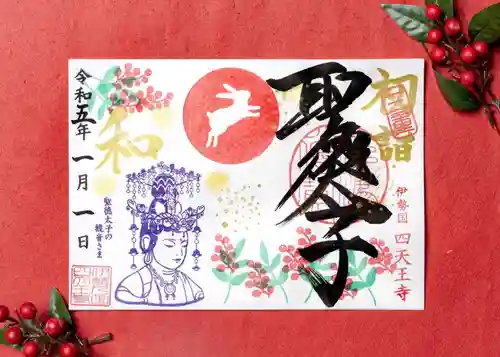 初詣
伊勢国 四天王寺
聖徳太子
和
聖徳太子の
観音さま
令和五年 一月 一日